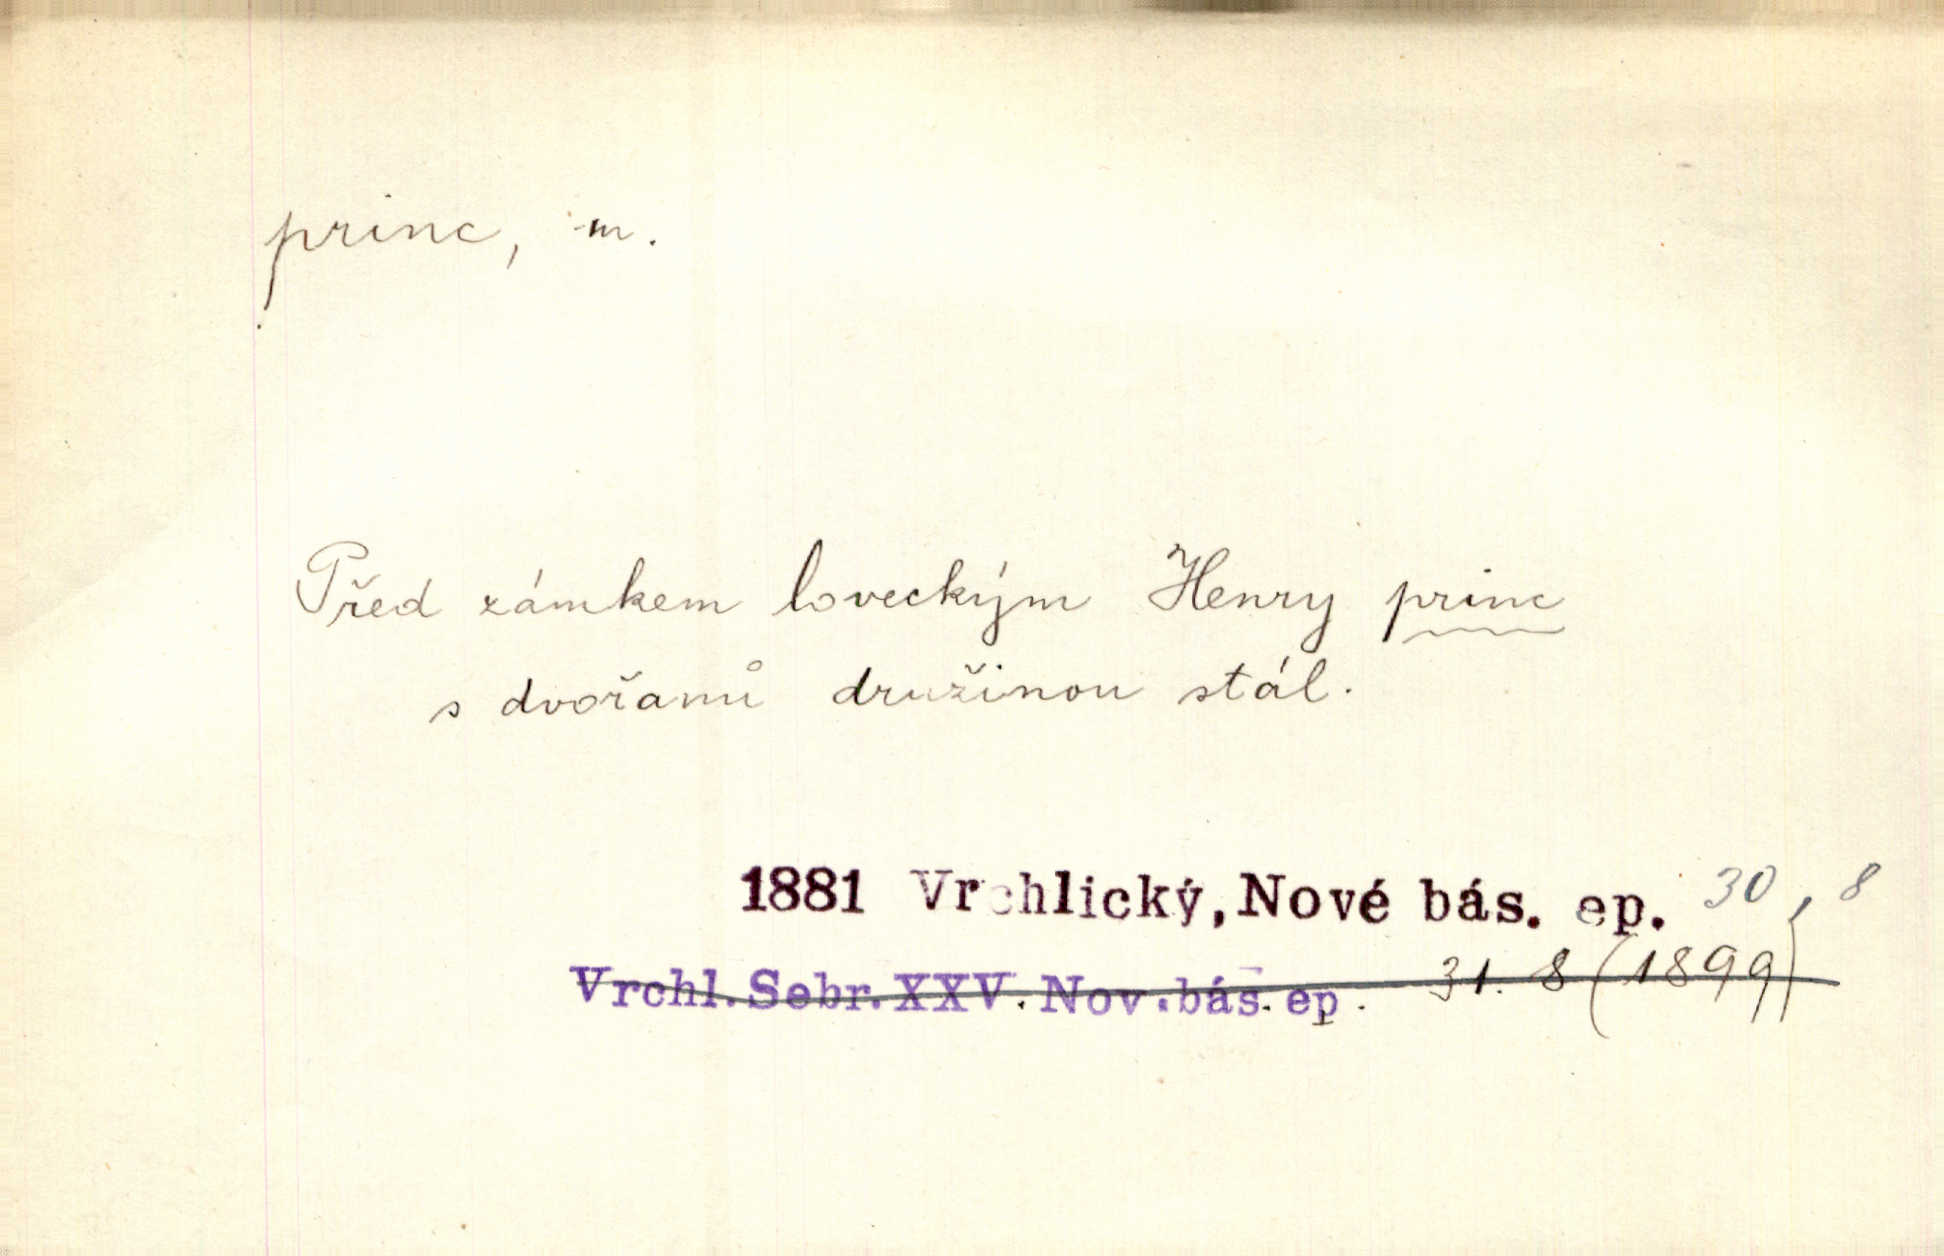 princ, m.
Před zámkem loveckým Henry princ
s dvořanů družinou stál.
1881 Vrchlický, Nové bás. ep. 30, 8
Vrchl. Sebr. XXV. Nov. bás. ep. 31. 8 (1899)